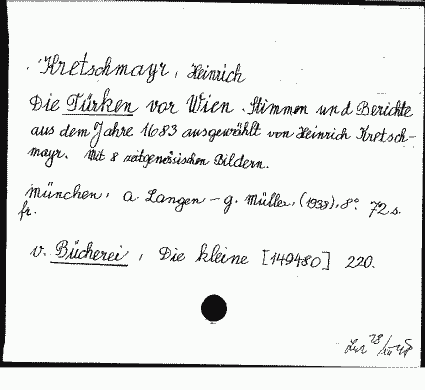 Kretschmayr, Heinrich
Die Türken vor Wien. Stimmen und Berichte
aus dem Jahre 1683 ausgewählt von Heinrich Kretsch-
mayr. Mit 8 zeitgenössischen Bildern.
München, A. Langen - G. Müller, (1938), 8°. 72 s.
fr.
v. Bücherei, Die kleine [149480] 220.